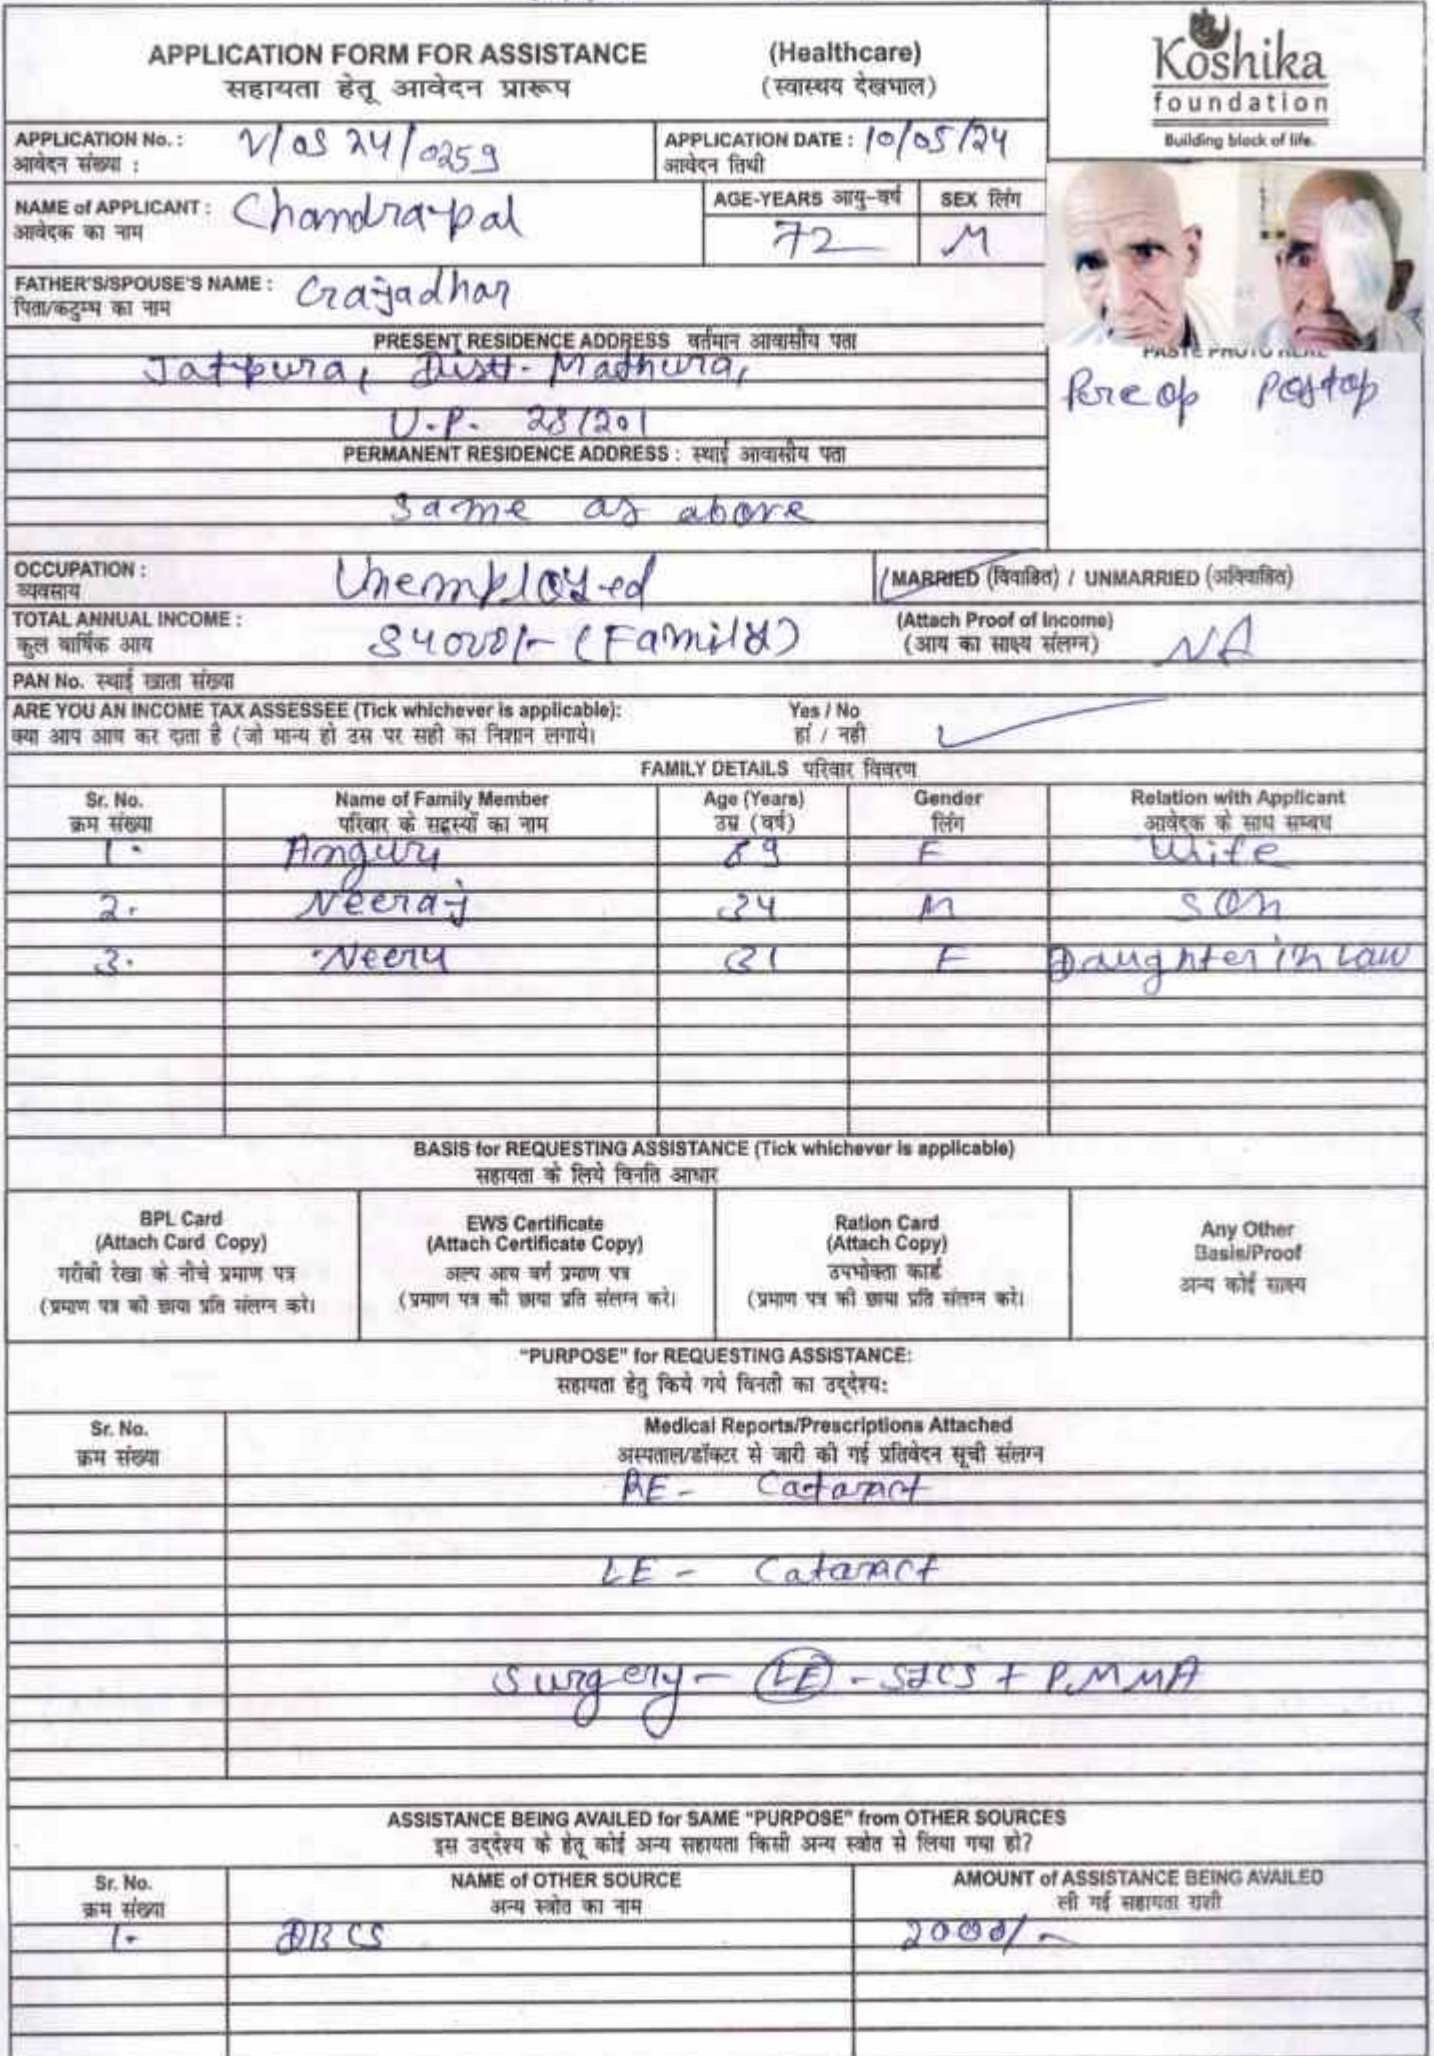 APPLICATION FORM FOR ASSISTANCE (Healthcare)
सहायता हेतू आवेदन प्रारूप (स्वास्थय देखभाल)
Koshika
foundation
Building block of life.
APPLICATION No. : V/OS 24/0259
आवेदन संख्या :
APPLICATION DATE : 10/05/24
आवेदन तिथी
NAME of APPLICANT : Chandrapal
आवेदक का नाम
AGE-YEARS आयु-वर्ष
72
SEX लिंग
M
FATHER'S/SPOUSE'S NAME : Gajadhar
पिता/कटुम्भ का नाम
PRESENT RESIDENCE ADDRESS वर्तमान आवासीय पता
Jatpura, Distt- Mathura,
U.P. 281201
PASTE PHOTO HERE
Pre op Postop
PERMANENT RESIDENCE ADDRESS : स्थाई आवासीय पता
Same as above
OCCUPATION : Unemployed
व्यवसाय
MARRIED (विवाहित) / UNMARRIED (अविवाहित)
TOTAL ANNUAL INCOME : 84000/- (Family)
कुल वार्षिक आय
(Attach Proof of Income) NA
(आय का साक्ष्य संलग्न)
PAN No. स्थाई खाता संख्या
ARE YOU AN INCOME TAX ASSESSEE (Tick whichever is applicable): Yes / No
क्या आप आय कर दाता है (जो मान्य हो उस पर सही का निशान लगाये। हां / नही
FAMILY DETAILS परिवार विवरण
Sr. No. Name of Family Member Age (Years) Gender Relation with Applicant
क्रम संख्या परिवार के सद्स्यों का नाम उम्र (वर्ष) लिंग आवेदक के साथ सम्बध
1. Anguri 69 F Wife
2. Neeraj 34 M Son
3. Neeru 31 F Daughter in Law
BASIS for REQUESTING ASSISTANCE (Tick whichever is applicable)
सहायता के लिये विनति आधार
BPL Card
(Attach Card Copy)
गरीबी रेखा के नीचे प्रमाण पत्र
(प्रमाण पत्र की छाया प्रति संलग्न करे।
EWS Certificate
(Attach Certificate Copy)
अल्प आय वर्ग प्रमाण पत्र
(प्रमाण पत्र की छाया प्रति संलग्न करे।
Ration Card
(Attach Copy)
उपभोक्ता कार्ड
(प्रमाण पत्र की छाया प्रति संलग्न करे।
Any Other
Basis/Proof
अन्य कोई साक्ष्य
"PURPOSE" for REQUESTING ASSISTANCE:
सहायता हेतु किये गये विनती का उद्देश्य:
Sr. No. Medical Reports/Prescriptions Attached
क्रम संख्या अस्पताल/डॉक्टर से जारी की गई प्रतिवेदन सूची संलग्न
RE - Cataract
LE - Cataract
Surgery - LE - SICS + PMMA
ASSISTANCE BEING AVAILED for SAME "PURPOSE" from OTHER SOURCES
इस उद्देश्य के हेतू कोई अन्य सहायता किसी अन्य स्त्रोत से लिया गया हो?
Sr. No. NAME of OTHER SOURCE AMOUNT of ASSISTANCE BEING AVAILED
क्रम संख्या अन्य स्त्रोत का नाम ली गई सहायता राशी
1. DBCS 2000/-